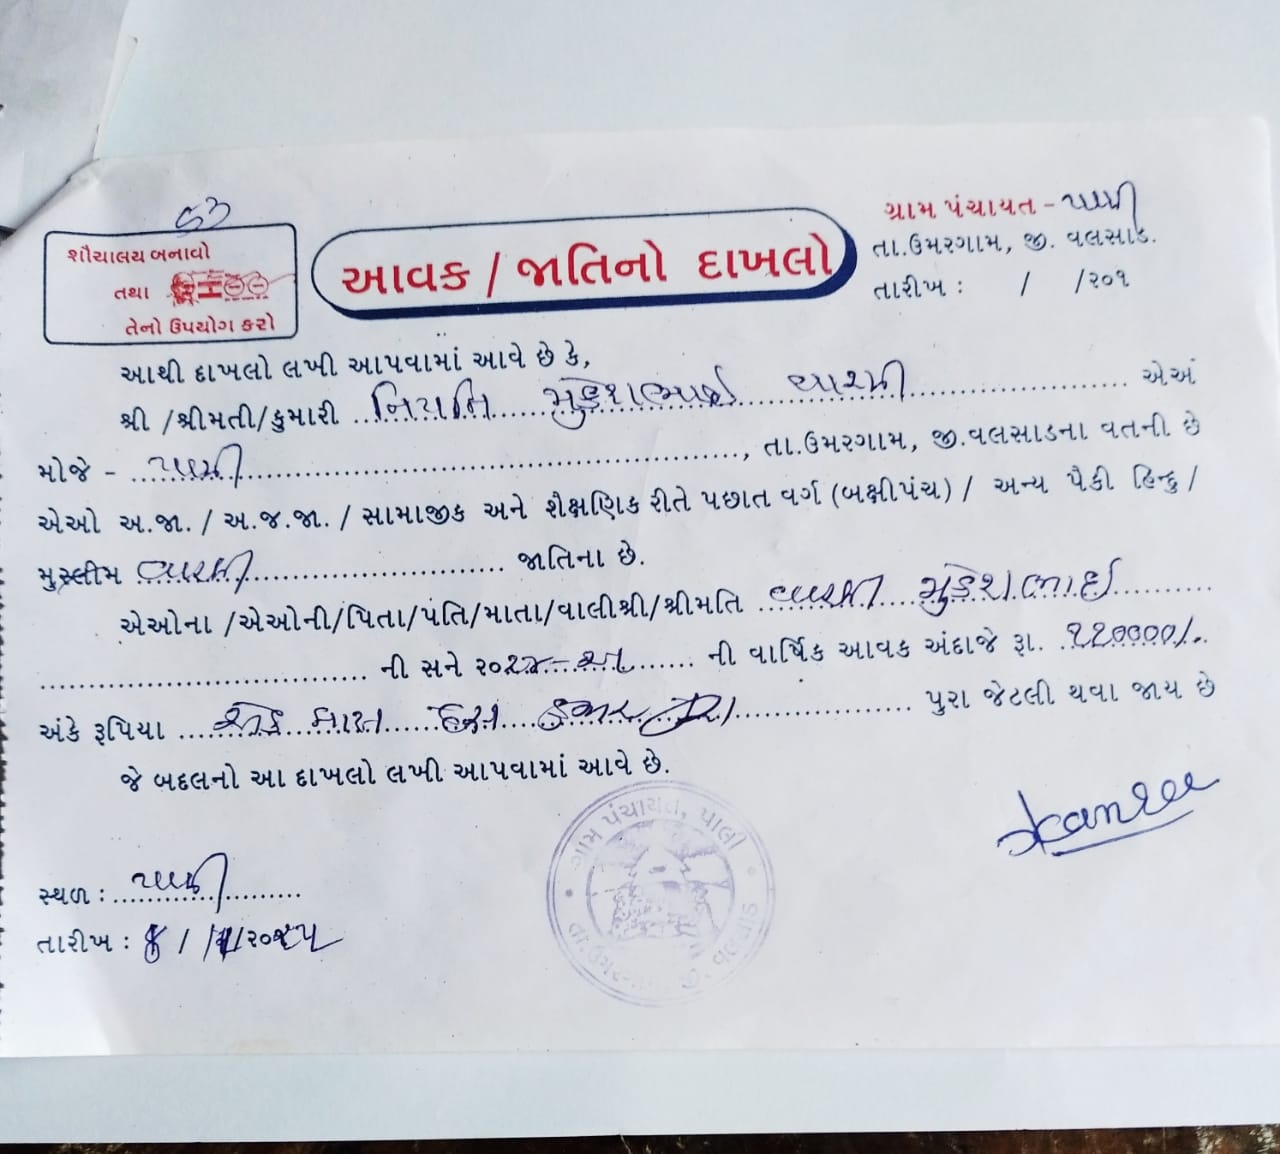 53
શૌચાલય બનાવો
તથા
તેનો ઉપયોગ કરો
આવક / જાતિનો દાખલો
ગ્રામ પંચાયત - પાલી
તા.ઉમરગામ, જી. વલસાડ.
તારીખ : / /૨૦૧
આથી દાખલો લખી આપવામાં આવે છે કે,
શ્રી /શ્રીમતી/કુમારી નિયતિ મુકેશભાઈ વારલી એઅં
મોજે - પાલી, તા.ઉમરગામ, જી.વલસાડના વતની છે
એઓ અ.જા. / અ.જ.જા. / સામાજીક અને શૈક્ષણિક રીતે પછાત વર્ગ (બક્ષીપંચ) / અન્ય પૈકી હિન્દુ /
મુસ્લીમ વારલી જાતિના છે.
એઓના /એઓની/પિતા/પતિ/માતા/વાલીશ્રી/શ્રીમતિ વારલી મુકેશભાઈ
ની સને ૨૦૨૪-૨૫ ની વાર્ષિક આવક અંદાજે રૂા. ૧૧૦૦૦૦/-
અંકે રૂપિયા એક લાખ દસ હજાર પુરા જેટલી થવા જાય છે
જે બદલનો આ દાખલો લખી આપવામાં આવે છે.
સ્થળ : પાલી
તારીખ : / /૨૦૨૫
ગ્રામ પંચાયત, પાલી
તા. ઉમરગામ, જી. વલસાડ